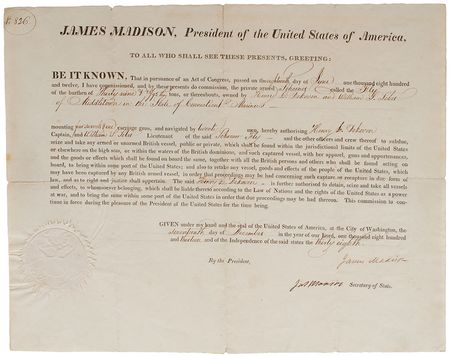 No 826
JAMES MADISON, President of the United States of America,
TO ALL WHO SHALL SEE THESE PRESENTS, GREETING:
BE IT KNOWN, That in pursuance of an Act of Congress, passed on the day of June one thousand eight hundred
and twelve, I have commissioned, and by these presents do commission, the private armed Schooner called the Fly
of the burthen of Thirty nine tons, or thereabouts, owned by Henry and William
of Middletown in the State of Connecticut
mounting carriage guns, and navigated by twenty men, hereby authorising Henry
Captain, and William Lieutenant of the said Schooner Fly and the other officers and crew thereof to subdue,
seize and take any armed or unarmed British vessel, public or private, which shall be found within the jurisdictional limits of the United States
or elsewhere on the high seas, or within the waters of the British dominions, and such captured vessel, with her apparel, guns and appurtenances,
and the goods or effects which shall be found on board the same, together with all the British persons and others who shall be found acting on
board, to bring within some port of the United States; and also to retake any vessel, goods and effects of the people of the United States, which
may have been captured by any British armed vessel, in order that proceedings may be had concerning such capture or recapture in due form of
law, and as to right and justice shall appertain. The said Henry is further authorised to detain, seize and take all vessels
and effects, to whomsoever belonging, which shall be liable thereto according to the Law of Nations and the rights of the United States as a power
at war, and to bring the same within some port of the United States in order that due proceedings may be had thereon. This commission to con-
tinue in force during the pleasure of the President of the United States for the time being.
GIVEN under my hand and the seal of the United States of America, at the City of Washington, the
seventeenth day of December in the year of our Lord, one thousand eight hundred
and thirteen and of the Independence of the said states the thirty eighth.
James Madison
By the President,
Jas Monroe Secretary of State.